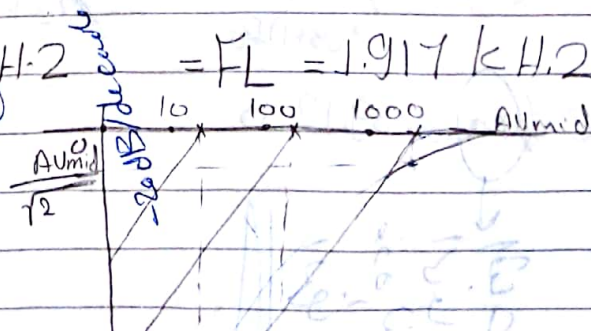 H.2 = FL = 1.917 kH.2
-20 dB/decade
10 100 1000 AVmid
0
AVmid
√2